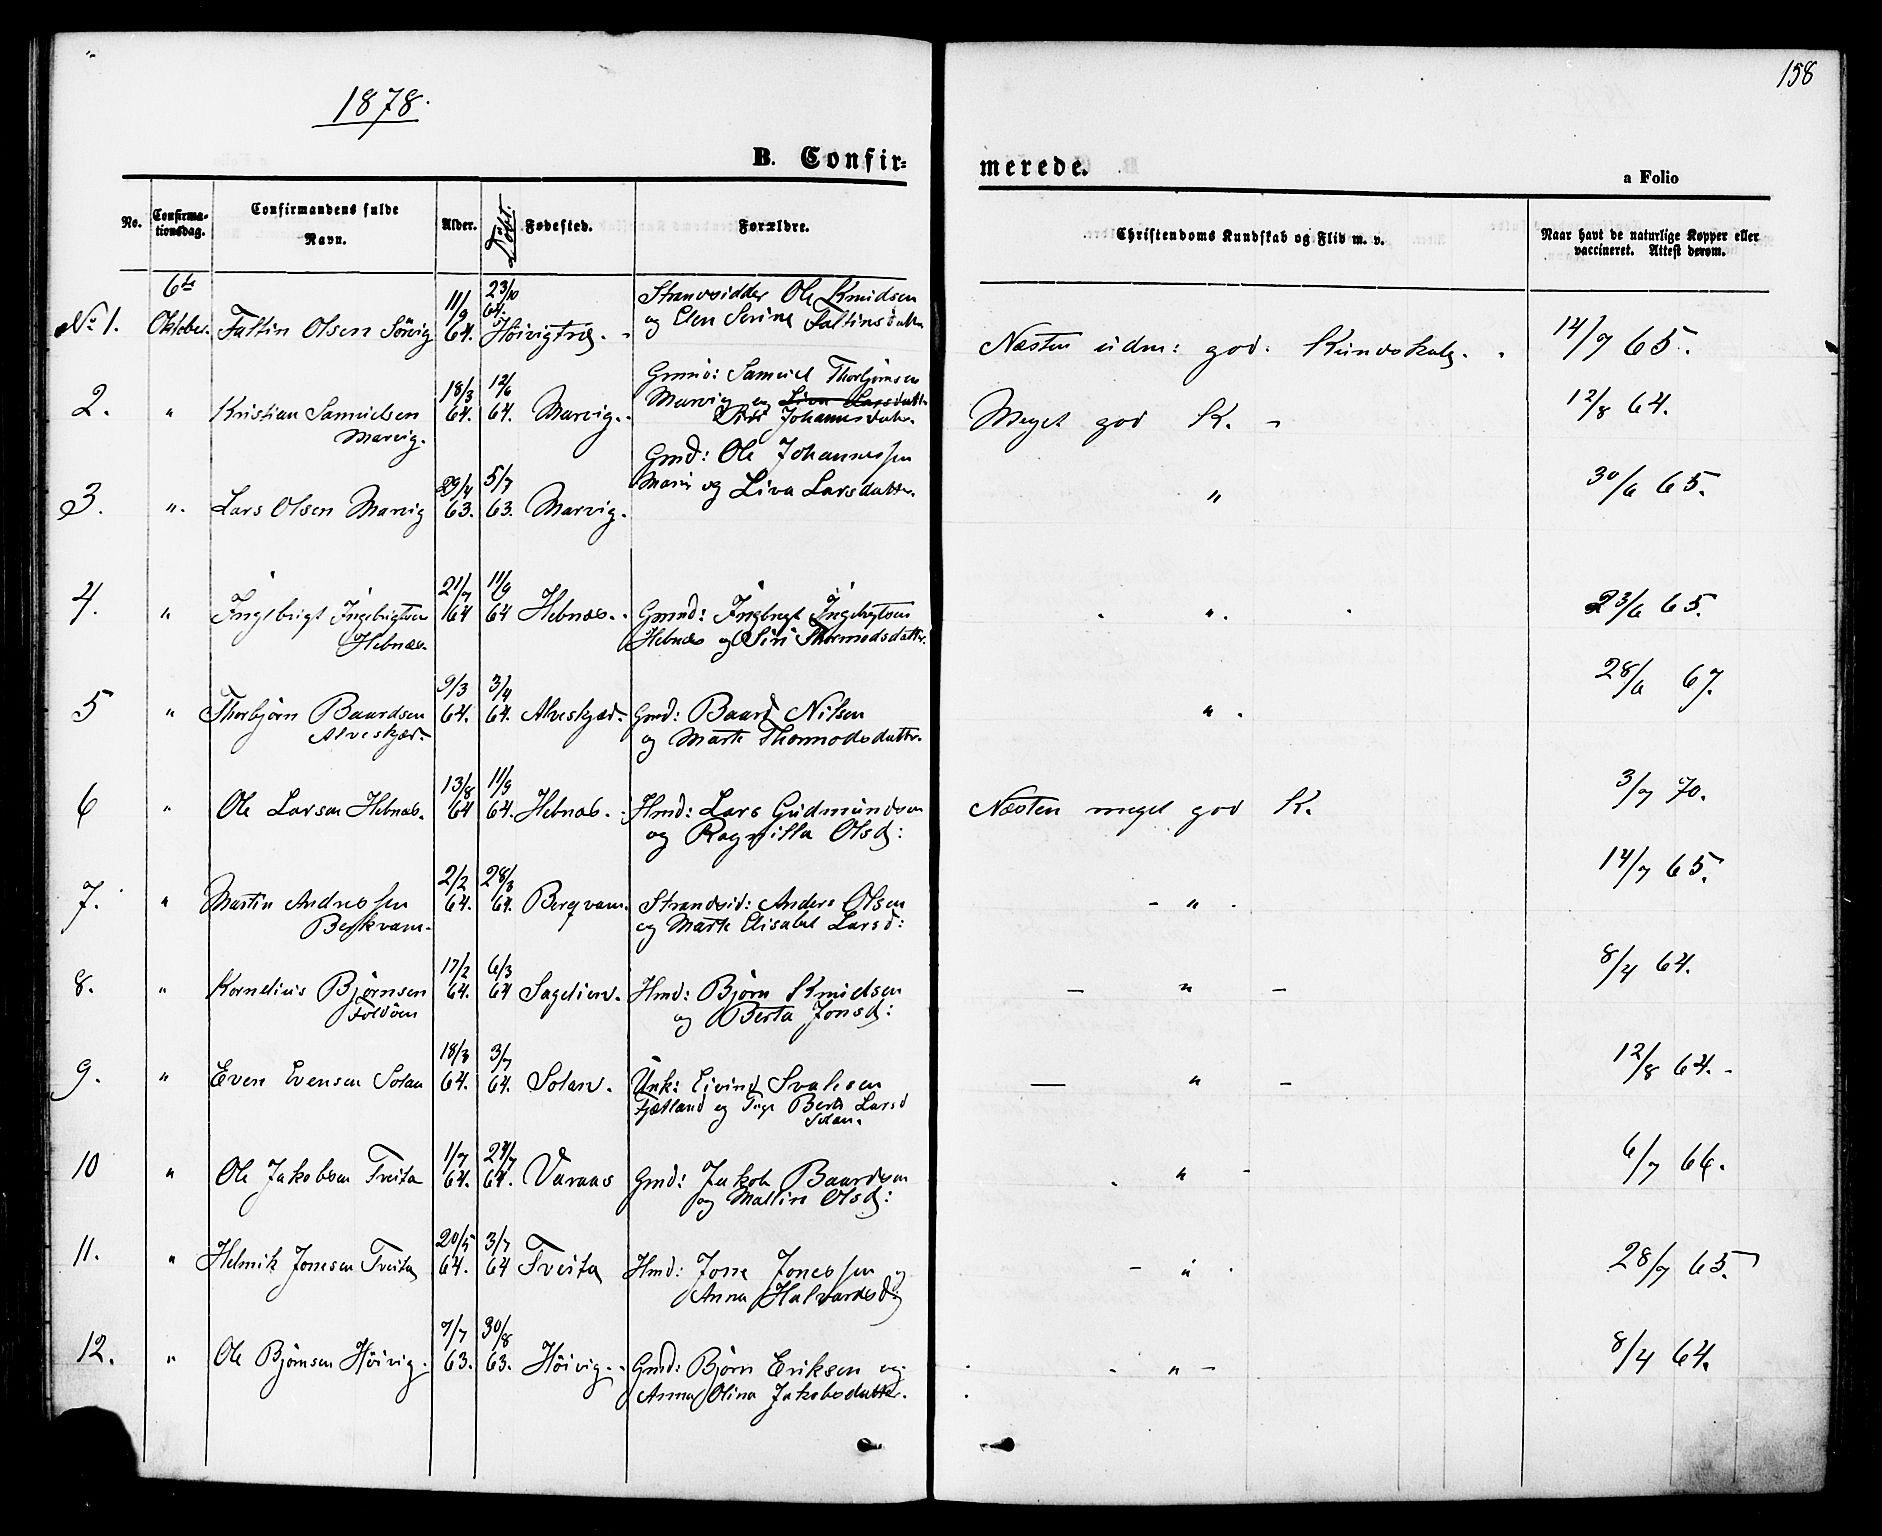 158
1878.
B. Confir-
merede.
a Folio
No.
Confirma-
tionsdag.
Confirmandens fulde
Navn.
Alder.
Döbt.
Fødested.
Forældre.
Christendoms Kundskab og Flid m. v.
Naar havt de naturlige Kopper eller
vaccineret. Attest derom.
6te
No 1. Oktober. Faltin Olsen Sörvig 11/9 64. 23/10 64. Höivigtræ. Strandsidder Ole Knudsen
og Elen Serina Faltinsdatter
Næsten udm: god. Kundskab. 14/7 65.
2. " Kristian Samuelsen 18/3 64. 12/6 64. Marvig. Gmnd: Samuel Thorbjörnsen
Marvig.
Marvig og Liva Larsdatter
Siri Johannsdatter.
Meget god K. - 12/8 64.
3. ". Lars Olsen Marvig 29/4 63. 5/7 63. Marvig. Gmd: Ole Johannessen
Marvi og Liva Larsdatter.
" 30/6 65.
4. " Ingebrigt Ingebrigtsen 21/7 64 11/9 64 Hebnæs. Gmnd: Ingbrigt Ingebrigtsen
Hebnæs.
Hebnæs og Siri Thormodsdatter.
". 23/6 65.
5 " Thorbjörn Baardsen 9/3 64. 3/4 64. Alveskjær. Gmd: Baard Nilsen
Alveskjær.
og Marte Thormodsdatter.
". 28/6 67.
6 " Ole Larsen Hebnæs. 13/8 64 11/9 64. Hebnæs. Hmd: Lars Gudmundsen
og Ragnilla Olsd:
Næsten meget god K. 3/7 70.
7. " Martin Andressen 2/2 64. 28/3 64. Bergvam. Strandsid: Anders Olsen
Berkvam.
og Marte Elisabet Larsd:
- " - 14/7 65.
8. " Kornelius Björnsen 17/2 64. 6/3 64 Sagelien. Hmd: Björn Knudsen
Foldöen
og Berta Jonsd:
- " - 8/4 64.
9. " Even Evensen Solan 18/3 64. 3/7 64. Solan. Unk: Eivind
Fjætland og Pige Berta Larsd
Solan.
- " - 12/8 64. -
10 " Ole Jakobsen Tveita 1/7 64. 24/7 64. Varaas Gmd: Jakob Baardsen
og Mallin Olsd:
" - 6/7 66.
11. " Helmik Jonesen Tveita 20/5 64. 3/7 64 Tveita Hmd: Jone Jonessen og
Anna Halvardsd:
- " . 28/7 65.
12. " Ole Björnsen Höivig. 7/7 63. 30/8 63. Höivig. Gmd: Björn Eriksen og
Anna Olina Jakobsdatter.
" - 8/4 64.